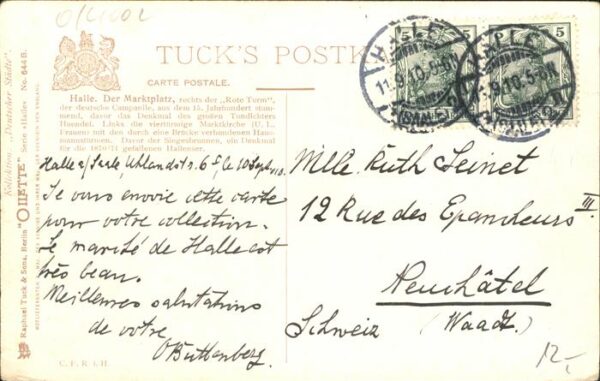 TUCK'S POSTK
CARTE POSTALE.
Halle. Der Marktplatz, rechts der „Rote Turm",
der deutsche Campanile, aus dem 15. Jahrhundert stam-
mend, davor das Denkmal des großen Tondichters
Haendel. Links die viertürmige Marktkirche (U. L.
Frauen) mit den durch eine Brücke verbundenen Haus-
mannstürmen. Davor der Singesbrunnen, ein Denkmal
für die 1870/71 gefallenen Hallenser.
Halle a/Saale, Uhlandstr. 6 I, le 10 Sept.
Je vous envoie cette carte
pour votre collection.
Le marché de Halle est
très beau.
Meilleures salutations
de votre
O Buttenberg.
Mlle. Ruth Jeinet
12 Rue des Epancheurs III.
Neuchâtel
Schweiz (Waadt.)
12.-
C. F. R. i. H.
Kollektion „Deutscher Städte"
"OILETTE" Serie «Halle» No. 644B.
Raphael Tuck & Sons, Berlin
HALLE
11.9.10.5-6N
(SAALE)
HALLE
.9.10.5-6N
(SAALE)
5
5
5